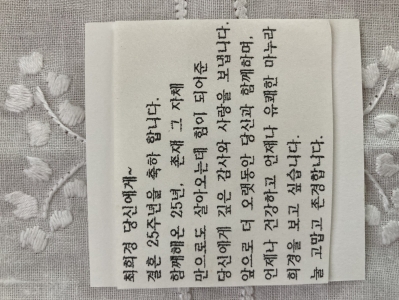 최희경 당신에게~
결혼 25주년을 축하 합니다.
함께해온 25년, 존재 그 자체
만으로도 살아오는데 힘이 되어준
당신에게 깊은 감사와 사랑을 보냅니다.
앞으로 더 오랫동안 당신과 함께하며,
언제나 건강하고 언제나 유쾌한 마누라
희경을 보고 싶습니다.
늘 고맙고 존경합니다.